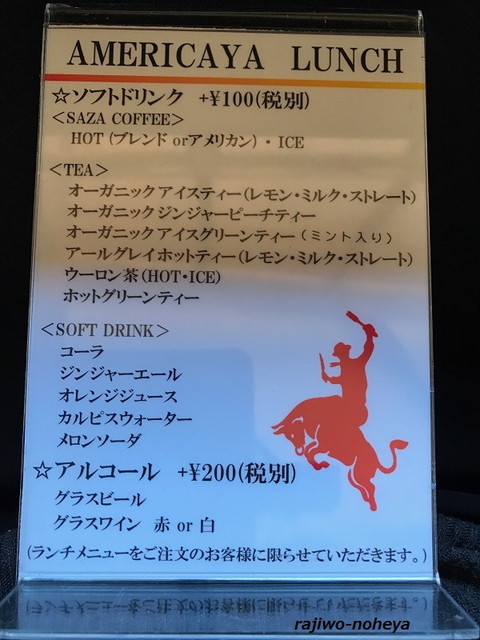 AMERICAYA LUNCH
☆ソフトドリンク +¥100(税別)
<SAZA COFFEE>
HOT (ブレンド orアメリカン)・ICE
<TEA>
オーガニックアイスティー(レモン・ミルク・ストレート)
オーガニックジンジャーピーチティー
オーガニックアイスグリーンティー(ミント入り)
アールグレイホットティー(レモン・ミルク・ストレート)
ウーロン茶(HOT・ICE)
ホットグリーンティー
<SOFT DRINK>
コーラ
ジンジャーエール
オレンジジュース
カルピスウォーター
メロンソーダ
☆アルコール +¥200(税別)
グラスビール
グラスワイン 赤 or 白
(ランチメニューをご注文のお客様に限らせていただきます。)
rajiwo-noheya